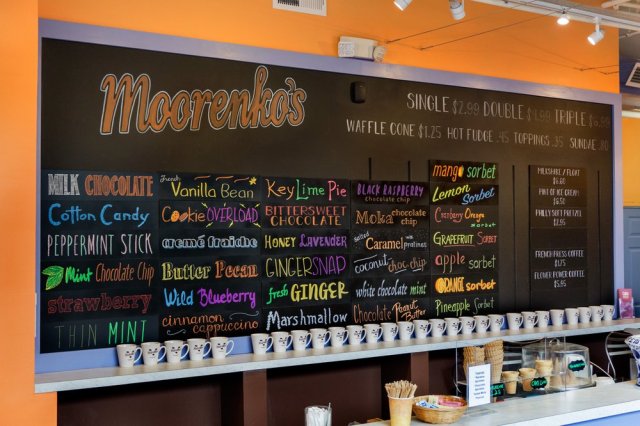 Moorenko's
SINGLE $2.99 DOUBLE $4.99 TRIPLE $6.99
WAFFLE CONE $1.25 HOT FUDGE .45 TOPPINGS .35 SUNDAE .80
MILK CHOCOLATE
Cotton Candy
PEPPERMINT STICK
Mint Chocolate Chip
strawberry
THIN MINT
French
Vanilla Bean
Cookie OVERLOAD
cremé fraîche
Butter Pecan
Wild Blueberry
cinnamon cappuccino
Key Lime Pie
BITTERSWEET CHOCOLATE
HONEY LAVENDER
GINGERSNAP
fresh GINGER
Marshmallow
BLACK RASPBERRY
chocolate chip
Moka chocolate chip
salted Caramel w/ pralines
coconut choc chip
white chocolate mint
Chocolate Peanut Butter
mango sorbet
Lemon Sorbet
Cranberry Orange sorbet
GRAPEFRUIT Sorbet
apple sorbet
ORANGE sorbet
Pineapple Sorbet
MILKSHAKE / FLOAT
$6.80
PINT OF ICE CREAM
PHILLY SOFT PRETZEL
$2.95
FRENCH PRESS COFFEE
FLOWER POWER COFFEE
$5.95